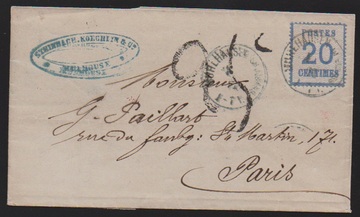 STEINBACH, KOECHLIN & Cie
MULHOUSE
MULHAUSEN
POSTES
20
CENTIMES
Monsieur
G. Paillart
rue du faubg. St Martin, 171.
Paris